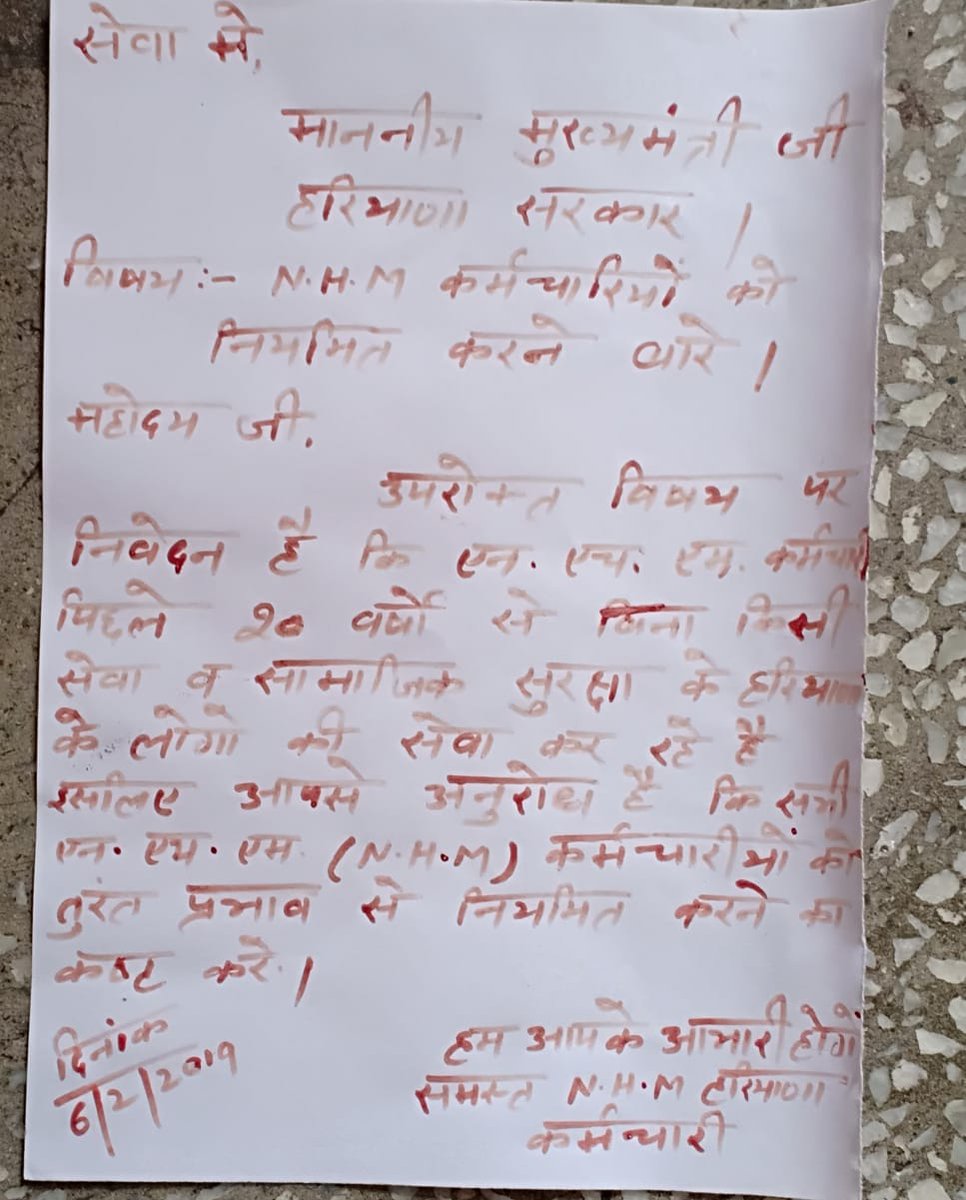 सेवा में,
माननीय मुख्यमंत्री जी
हरियाणा सरकार ।
विषय:- N.H.M कर्मचारियों को
नियमित करने बारे ।
महोदय जी,
उपरोक्त विषय पर
निवेदन है कि एन. एच. एम. कर्मचारी
पिछले 20 वर्षों से बिना किसी
सेवा व सामाजिक सुरक्षा के हरियाणा
के लोगो की सेवा कर रहे है
इसलिए आपसे अनुरोध है कि सभी
एन. एच. एम. (N.H.M) कर्मचारीयों को
तुरंत प्रभाव से नियमित करने का
कष्ट करे ।
हम आपके आभारी होगें
समस्त N.H.M हरियाणा
कर्मचारी
दिनांक
6/2/2019